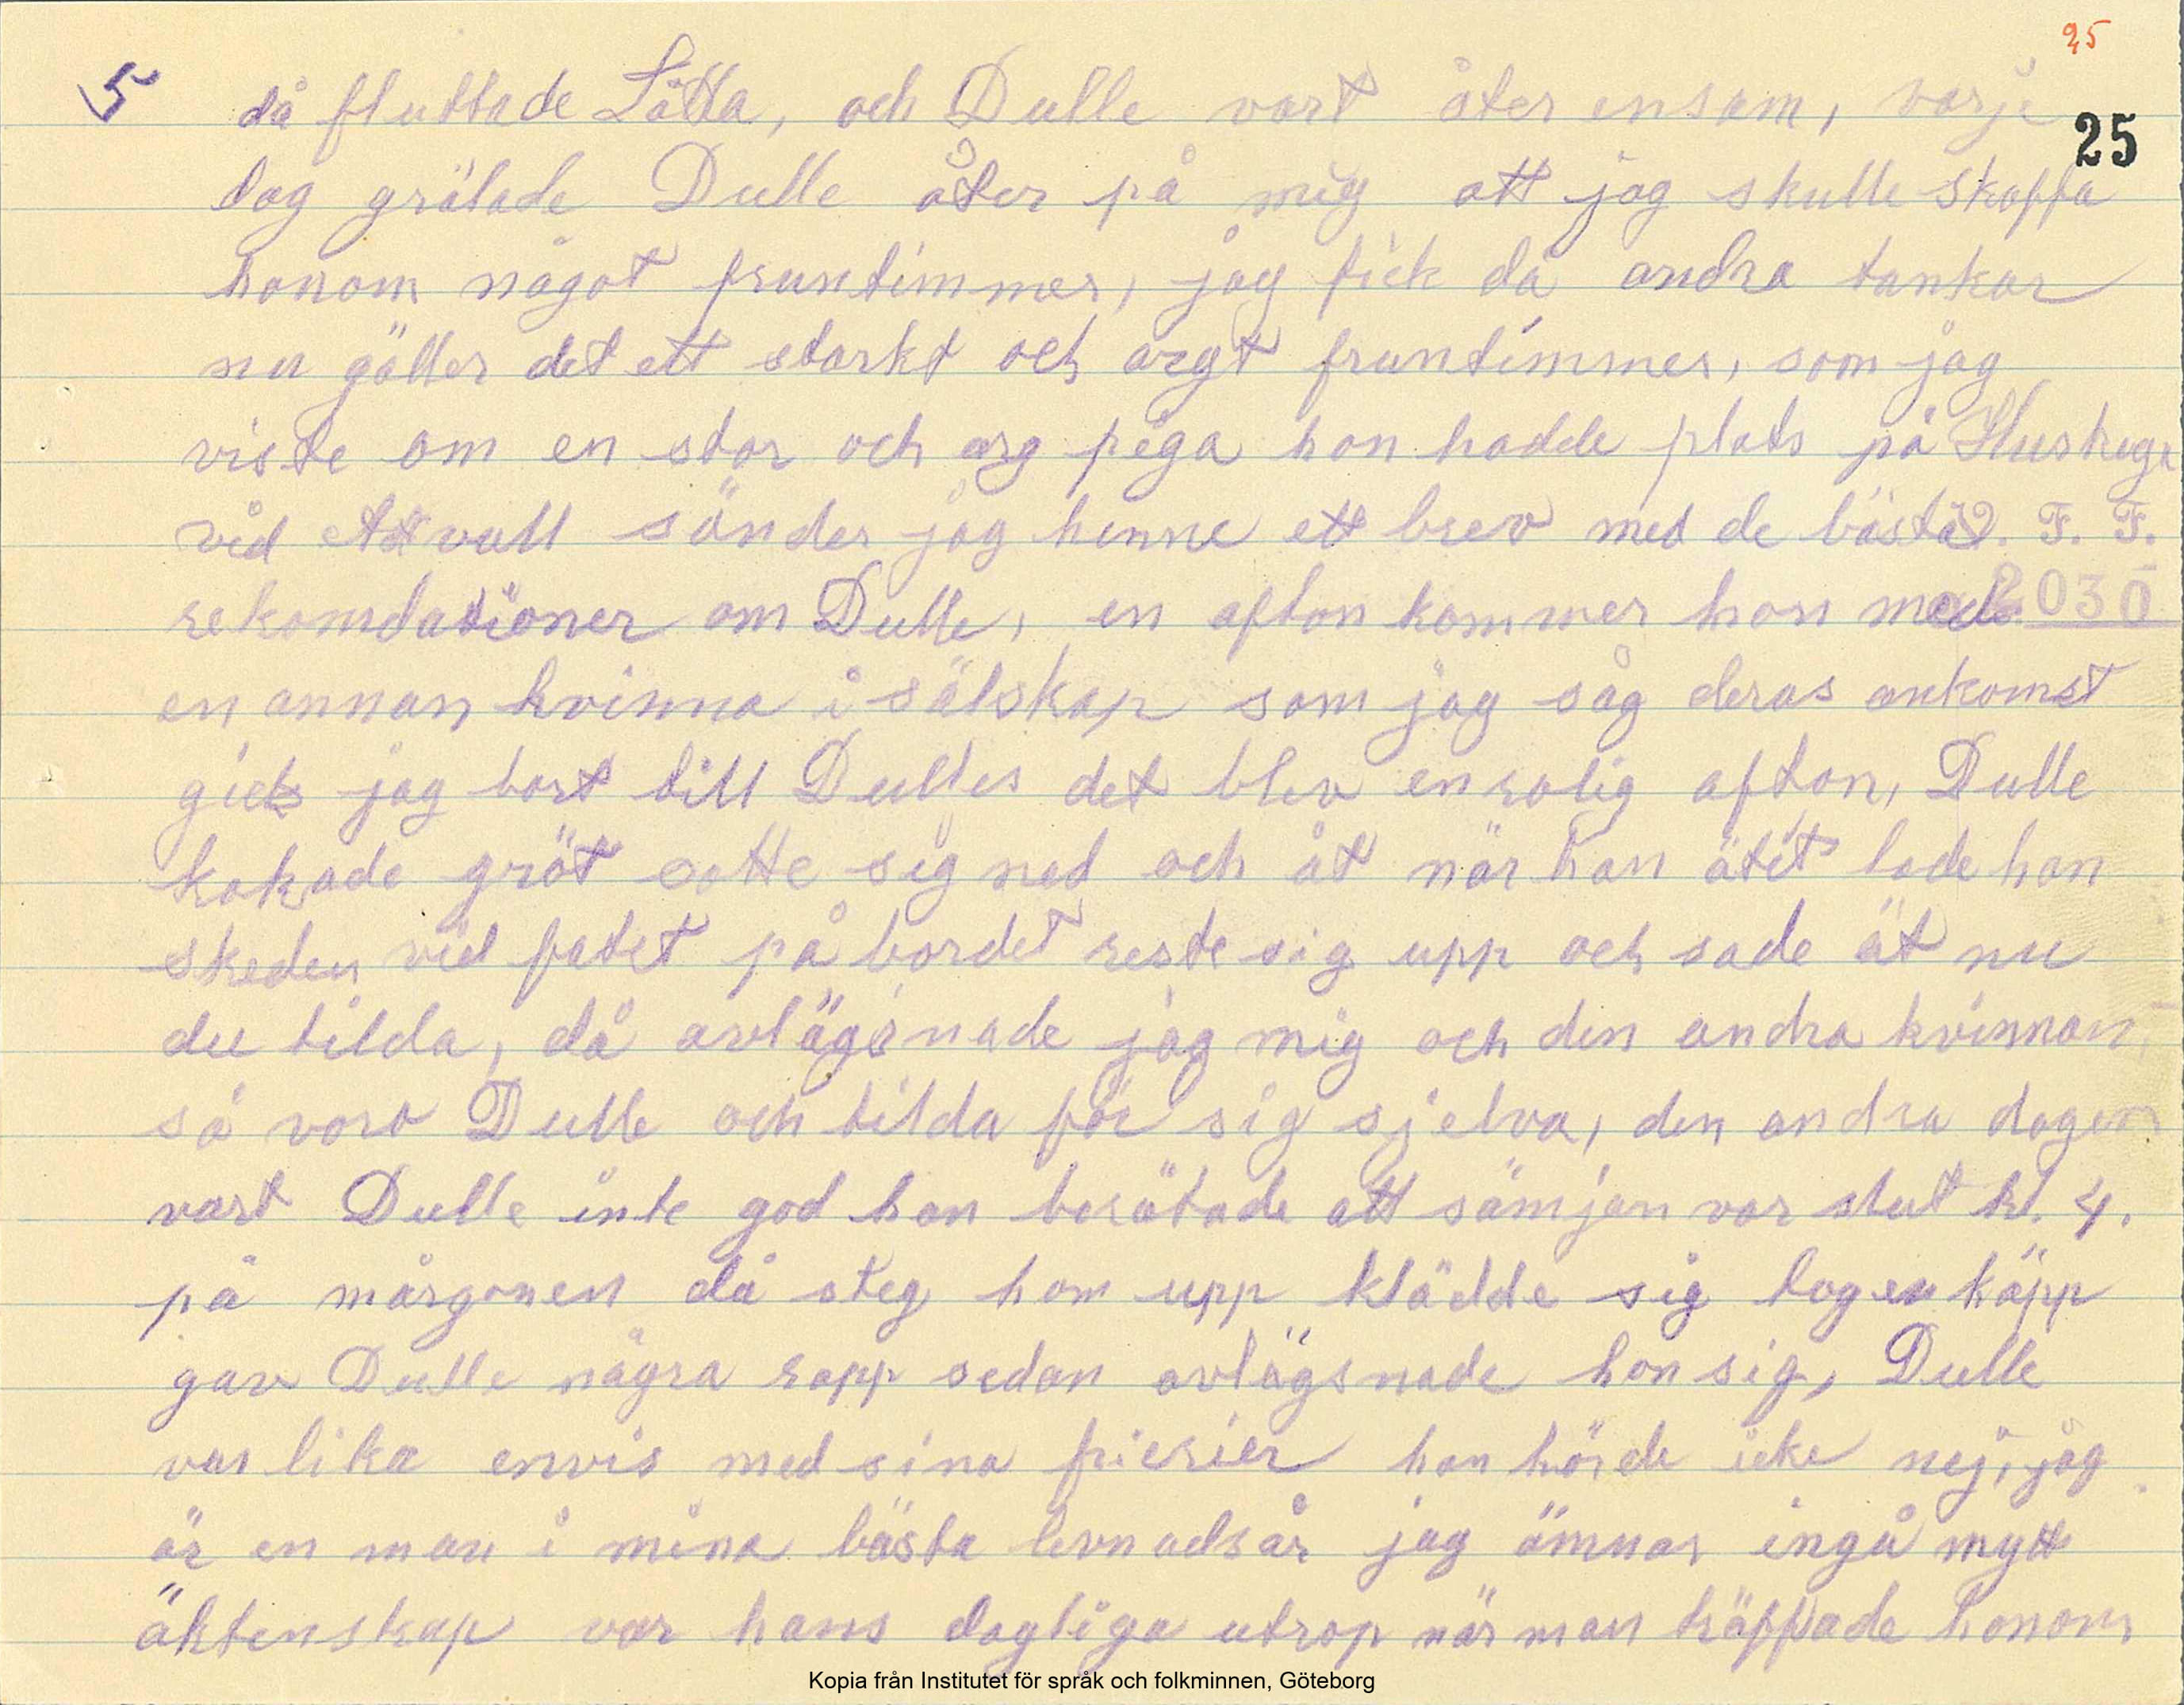 25
5 då fluttade Lotta, och Dulle vart åter ensam, varje
25
dag grälade Dulle åter på mig att jag skulle skaffa
honom något fruntimmer, jag fick då andra tankar
nu gäller det ett starkt och argt fruntimmer, som jag
viste om en stor och arg piga hon hadde plats på
vid Attvall sänder jag henne ett brev med de bästa V. F. F.
rekomdationer om Dulle, en afton kommer hon med 2030
en annan kvinna i sälskap som jag såg deras ankomst
gick jag bort till Dulles det blev en rolig afton, Dulle
kokade gröt satte sig ned och åt när han ätit lade han
skeden vid fatet på bordet reste sig upp och sade ät nu
du tilda, då avlägsnade jag mig och den andra kvinnan,
så voro Dulle och tilda för sig sjelva, den andra dagen
vart Dulle inte god han berätade att sämjan var slut kl. 4.
på mårgonen då steg hon upp klädde sig tog en käpp
gav Dulle några rapp sedan avlägsnade hon sig, Dulle
var lika envis med sina frierier han hörde icke nej, jag
är en man i mina bästa levnadsår jag ämnar ingå nytt
äktenskap var hans dagliga utrop när man käppade honom
Kopia från Institutet för språk och folkminnen, Göteborg